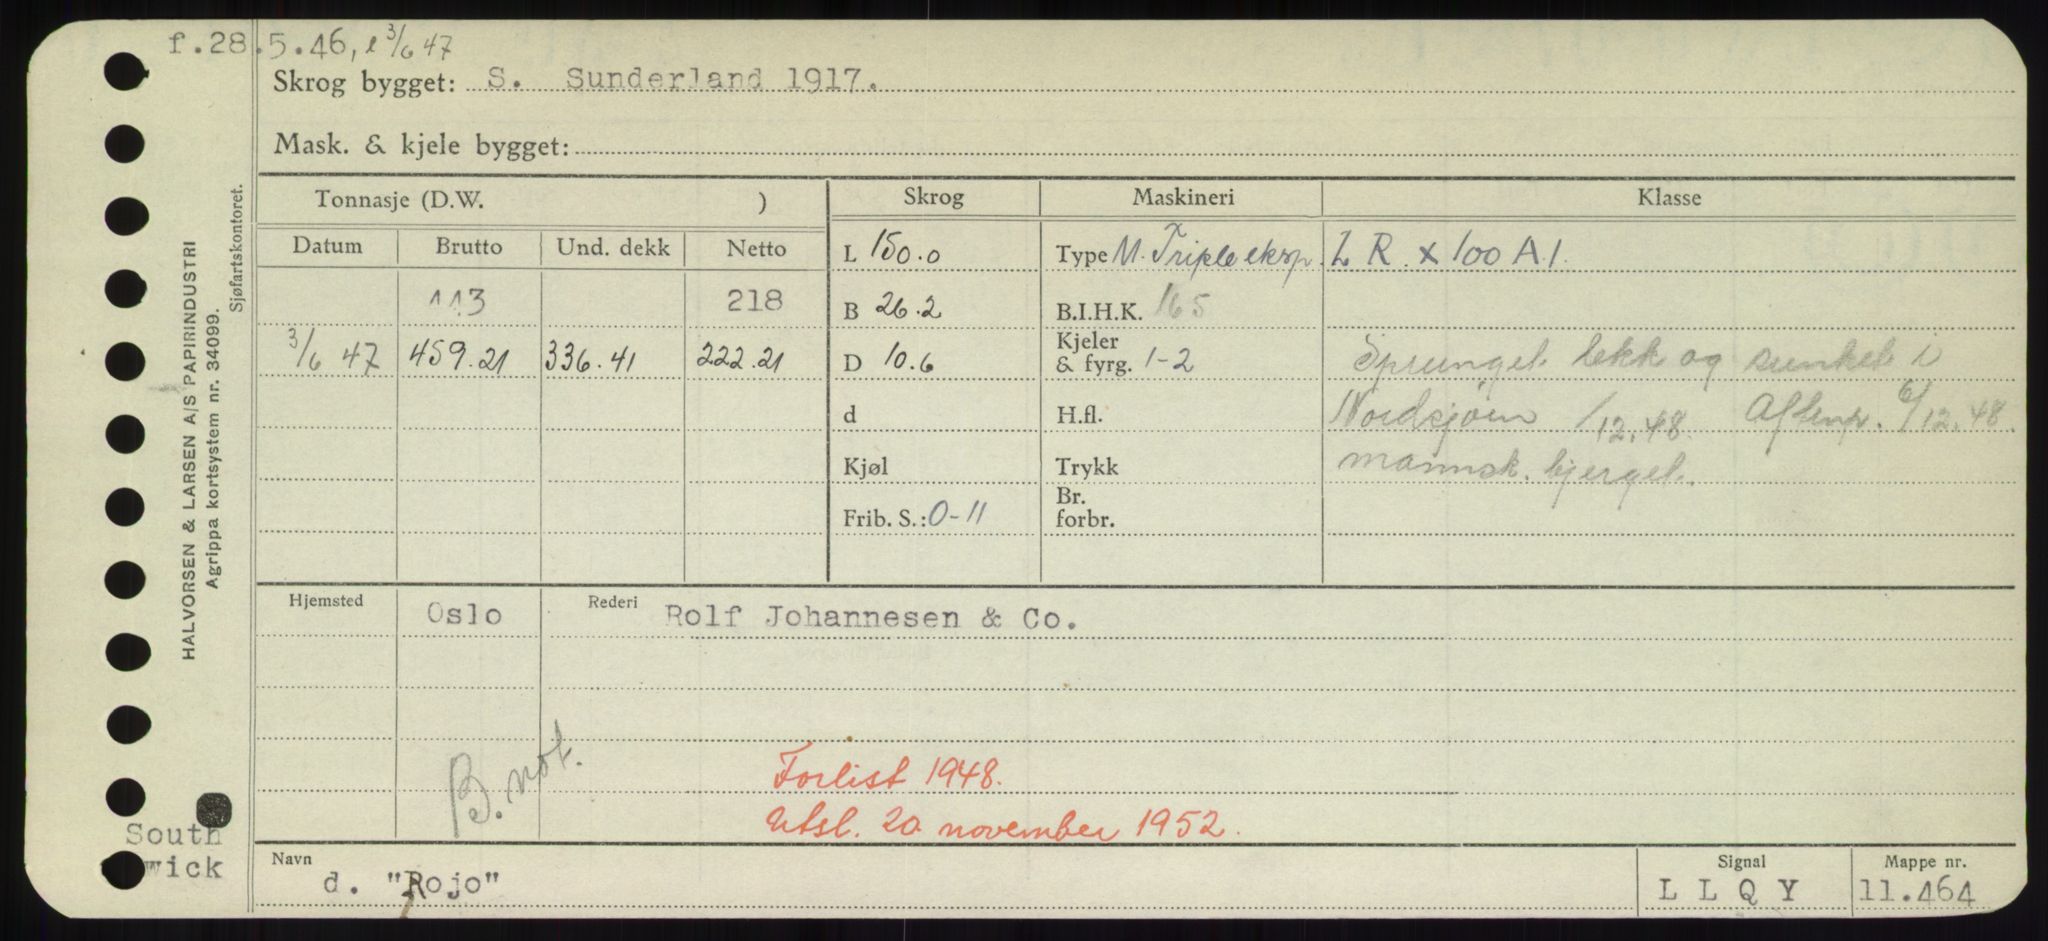 f.28.5.46, e 3/6 47
Skrog bygget: S. Sunderland 1917.
Mask. & kjele bygget:
Tonnasje (D.W. )
Skrog
Maskineri
Klasse
Datum Brutto Und. dekk Netto
L 150.0
Type M. Triple eksp.
L R. x 100 A.1.
113 218
B 26.2
B.I.H.K. 165
3/6 47 459.21 336.41 222.21
D 10.6
Kjeler
& fyrg. 1-2
Sprunget lekk og sunket i
d
H.fl.
Nordsjøen /12.48. Aftenp. 6/12.48.
Kjøl
Trykk
mannsk. bjerget.
Frib. S.: 0-11
Br.
forbr.
Hjemsted Oslo Rederi Rolf Johannesen & Co.
B. not.
Forlist 1948.
Utsl. 20 november 1952.
Navn d. "Rojo"
Signal L L Q Y
Mappe nr. 11.464
South
wick
HALVORSEN & LARSEN A/S PAPIRINDUSTRI
Agrippa kortsystem nr. 34099.
Sjøfartskontoret.